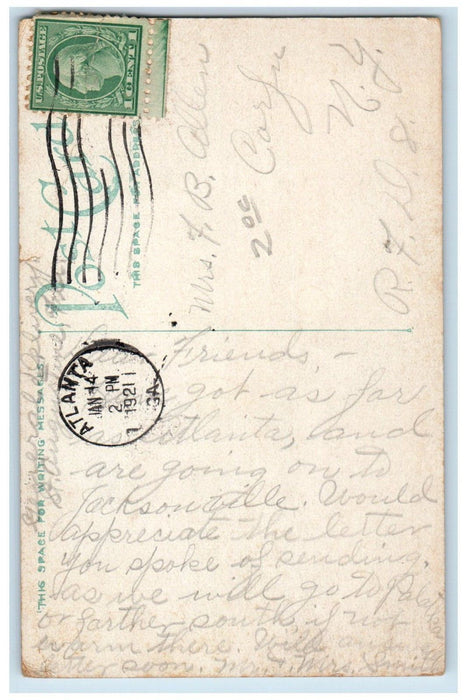 U.S. POSTAGE
1 CENT 1
Post Card
THIS SPACE FOR ADDRESS
Mrs. F. B. Allen
Corfu
N.Y.
R. F. D. 8.
200
ATLANTA
GA.
JAN 14
2 PM
1921
1
"THIS SPACE FOR WRITING MESSAGES"
General Delivery
St. Augustine
Dear Friends, -
got as far
as Atlanta, and
are going on to
Jacksonville. Would
appreciate the letter
you spoke of sending,
as we will go to
or farther south if not
warm there. Will
soon. Mr. & Mrs. Smith